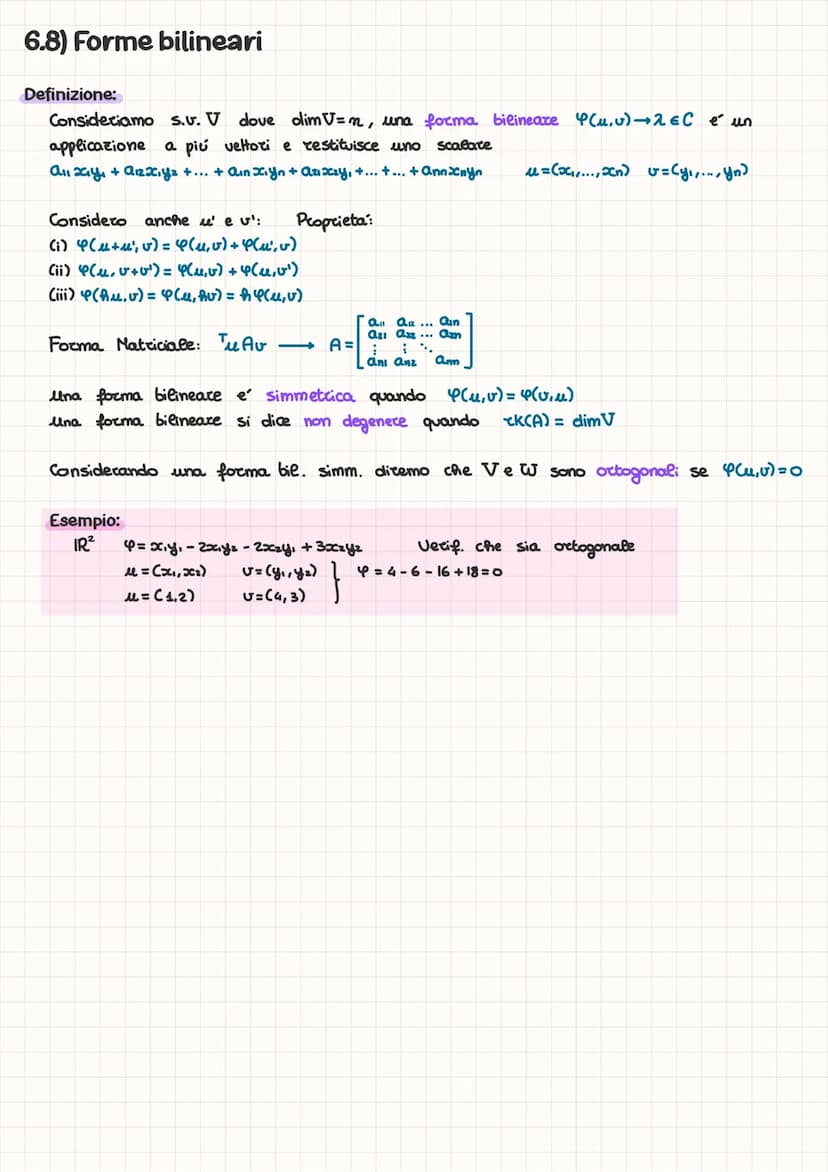 6.8) Forme bilineari
Definizione:
Consideriamo s.v. V dove dimV=n, una forma bilineare φ(u,v)→λ∈C é un
applicazione a piú vettori e restituisce uno scalare
a₁₁x₁y₁ + a₁₂x₁y₂ + ... + a₁ₙx₁yₙ + a₂₁x₂y₁ + ... + ... + aₙₙxₙyₙ u=(x₁,...,xₙ) v=(y₁,...,yₙ)
Considero anche u' e v': Proprietá:
(i) φ(u+u',v) = φ(u,v) + φ(u',v)
(ii) φ(u,v+v') = φ(u,v) + φ(u,v')
(iii) φ(hu,v) = φ(u,hv) = hφ(u,v)
Forma Matriciale: ᵀuAv ⟶ A = [a₁₁ a₁₂ ... a₁ₙ
a₂₁ a₂₂ ... a₂ₙ
⋮ ⋮ ⋱
aₙ₁ aₙ₂ aₙₙ]
Una forma bilineare é simmetrica quando φ(u,v) = φ(v,u)
Una forma bilineare si dice non degenere quando rk(A) = dimV
Considerando una forma bil. simm. diremo che V e W sono ortogonali se φ(u,v)=0
Esempio:
ℝ² φ = x₁y₁ - 2x₁y₂ - 2x₂y₁ + 3x₂y₂ Verif. che sia ortogonale
u = (x₁,x₂) v = (y₁,y₂) } φ = 4 - 6 - 16 + 18 = 0
u = (1,2) v = (4,3)